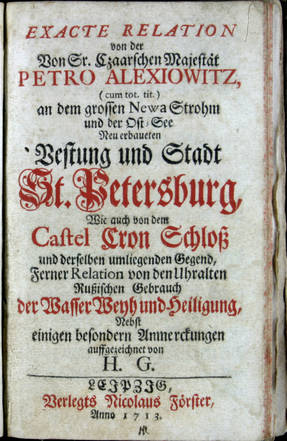 EXACTE RELATION
von der
Von Sr. Czaarschen Majestät
PETRO ALEXIOWITZ,
(cum tot. tit.)
an dem grossen Newa Strohm
und der Ost-See
Neu erbaueten
Vestung und Stadt
St. Petersburg,
Wie auch von dem
Castel Cron Schloß
und derselben umliegenden Gegend,
Ferner Relation von den Uhralten
Rußischen Gebrauch
der Wasser Weyh und Heiligung,
Nebst
einigen besondern Anmerckungen
auffgezeichnet von
H. G.
LEIPZIG,
Verlegts Nicolaus Förster,
Anno 1713.